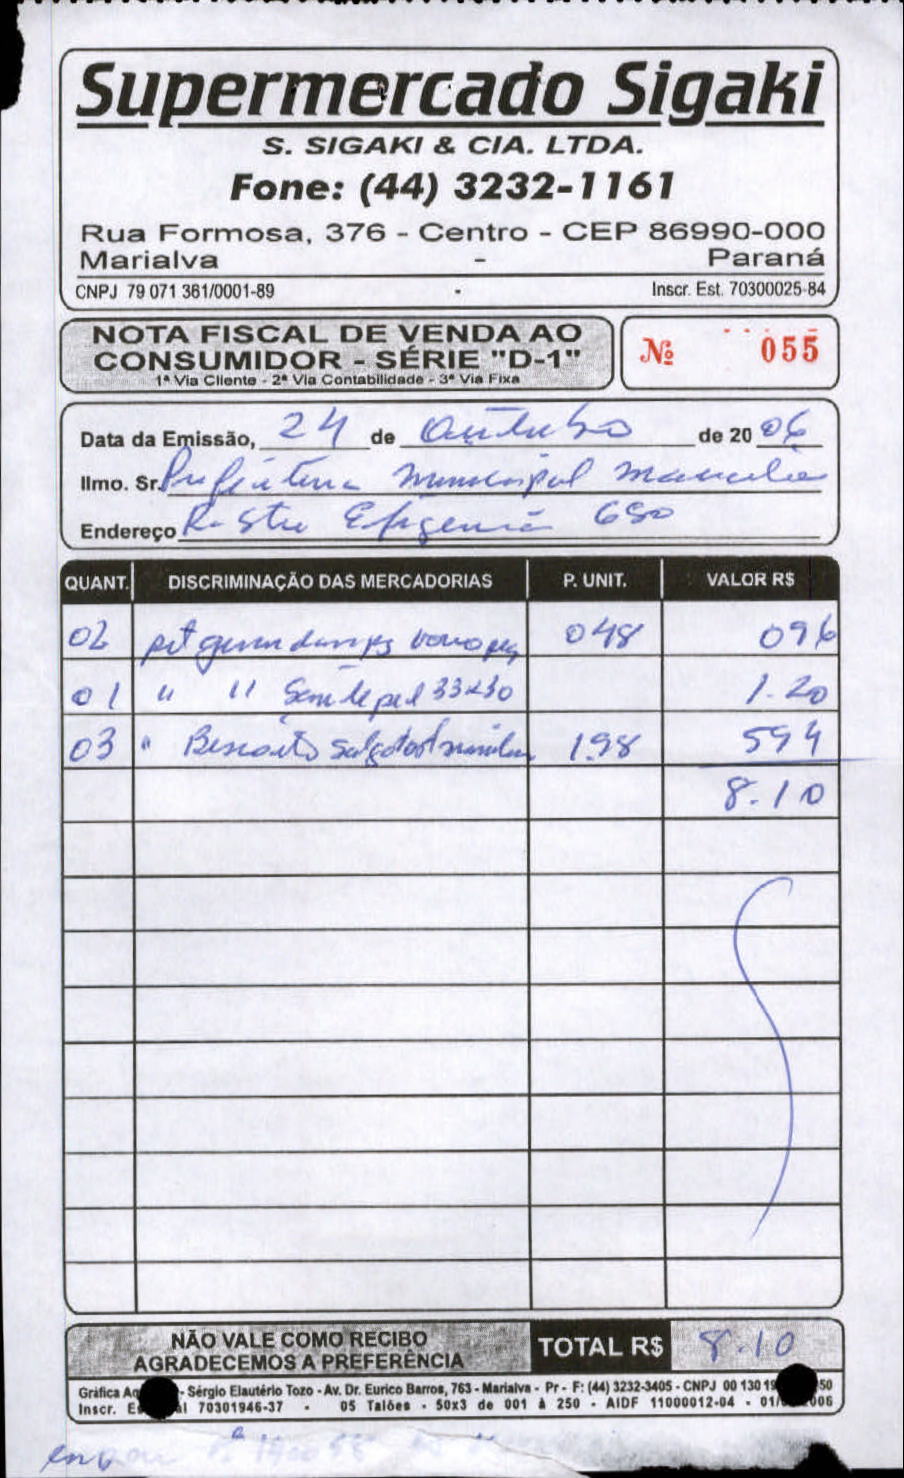 Supermercado Sigaki
S. SIGAKI & CIA. LTDA.
Fone: (44) 3232-1161
Rua Formosa, 376 - Centro - CEP 86990-000
Marialva - Paraná
CNPJ 79 071 361/0001-89 Inscr. Est. 70300025-84
NOTA FISCAL DE VENDA AO
CONSUMIDOR - SÉRIE "D-1"
1ª Via Cliente - 2ª Via Contabilidade - 3ª Via Fixa
Nº 055
Data da Emissão, 24 de outubro de 20 06
Ilmo. Sr. Prefeitura Municipal Marialva
Endereço R. Sta Efigenia 680
QUANT. DISCRIMINAÇÃO DAS MERCADORIAS P. UNIT. VALOR R$
02 pct 048 096
01 " " 33x30 1.20
03 " Biscoito Salgado 1.98 594
8.10
NÃO VALE COMO RECIBO
AGRADECEMOS A PREFERÊNCIA
TOTAL R$ 8.10
Gráfica - Sérgio Elautério Tozo - Av. Dr. Eurico Barros, 763 - Marialva - Pr - F: (44) 3232-3405 - CNPJ 00 130
Inscr. 70301946-37 - 05 Talões - 50x3 de 001 à 250 - AIDF 11000012-04